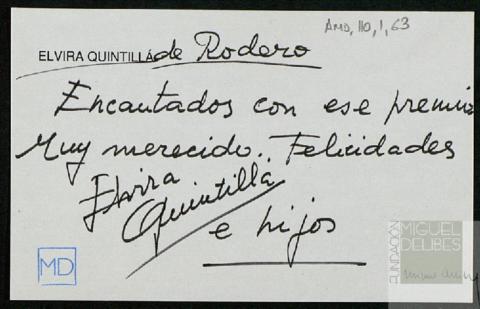 AMD, 110, 1, 63
ELVIRA QUINTILLÁ de Rodero
Encantados con ese premio
Muy merecido.. Felicidades
Elvira
Quintillá
e hijos
MD
FUNDACIÓN
MIGUEL
DELIBES